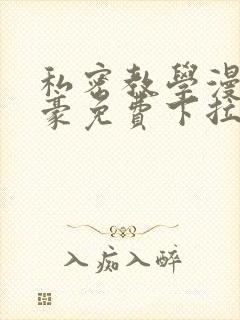 私密教學漫
豪免費下拉
入痴入醉